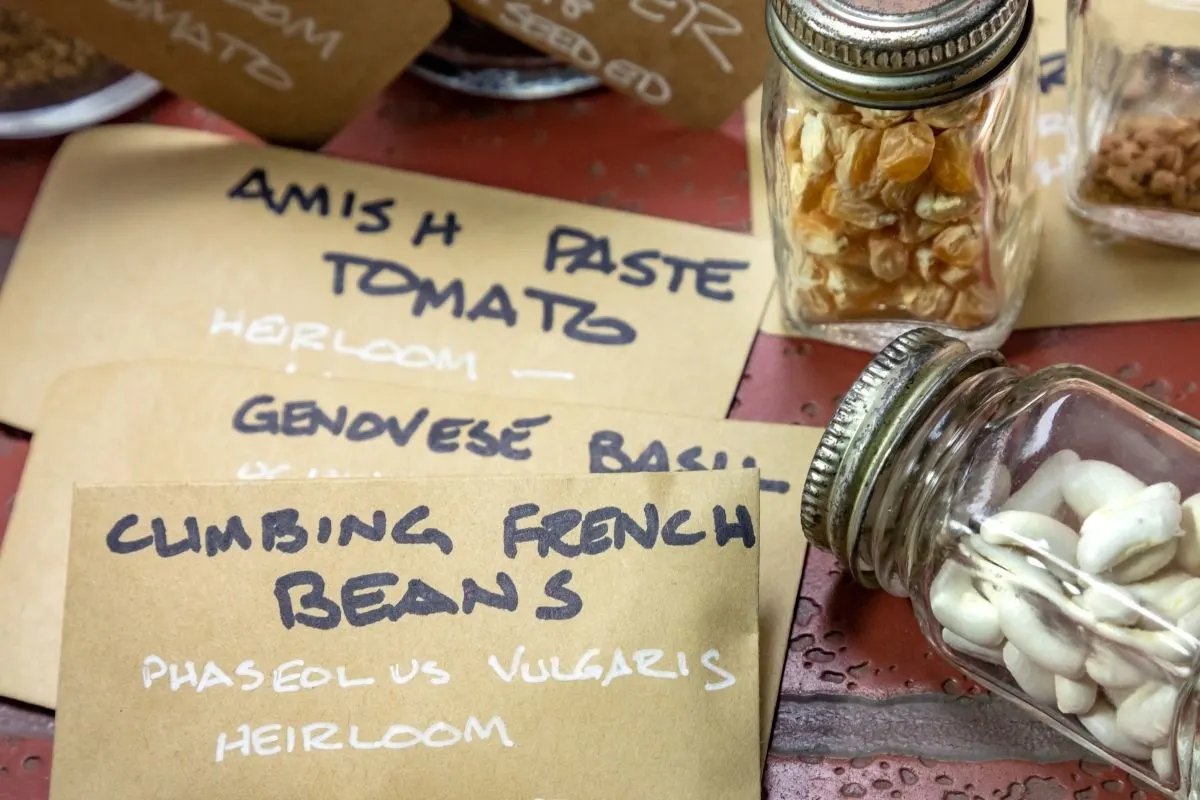 TOMATO
SEEDED
AMISH PASTE
TOMATO
HEIRLOOM —
GENOVESE BASIL
CLIMBING FRENCH
BEANS
PHASEOLUS VULGARIS
HEIRLOOM